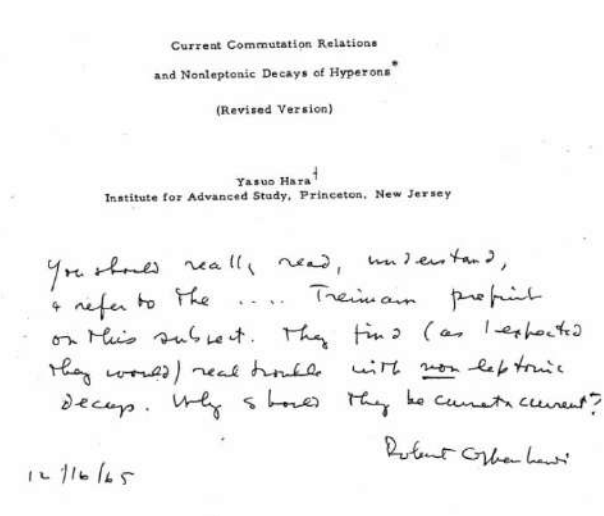 Current Commutation Relations
and Nonleptonic Decays of Hyperons*
(Revised Version)
Yasuo Hara†
Institute for Advanced Study, Princeton, New Jersey
You should really read, understand,
& refer to the .... Treiman preprint
on this subject. They find (as I expected
they would) real trouble with non leptonic
decays. Why should they be current x current?
Robert Oppenheimer
12/16/65